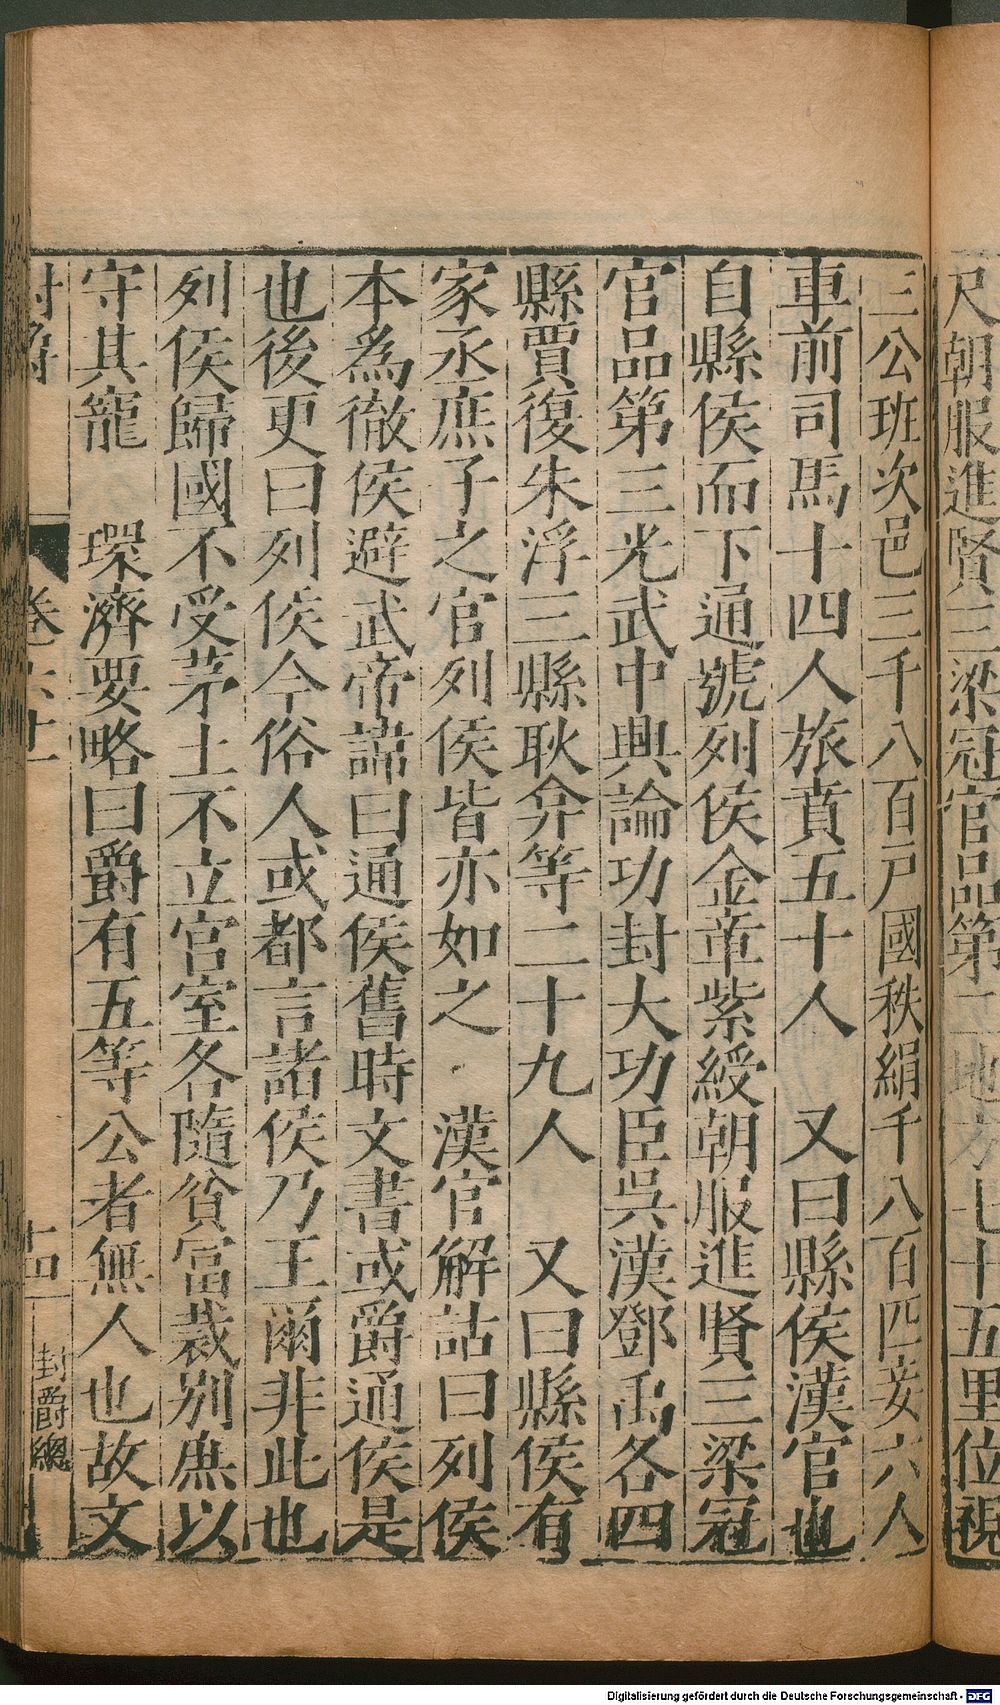 尺朝服進賢三梁冠官品第二地方七十五里位視
三公班次邑三千八百戶國秩絹千八百匹妾六人
車前司馬十四人旅賁五十人　又曰縣侯漢官也
自縣侯而下通號列侯金章紫綬朝服進賢三梁冠
官品第三光武中興論功封大功臣吳漢鄧禹各四
縣賈復朱浮三縣耿弇等二十九人　又曰縣侯有
家丞庶子之官列侯皆亦如之　漢官解詁曰列侯
本為徹侯避武帝諱曰通侯舊時文書或爵通侯是
也後更曰列侯今俗人或都言諸侯乃王爾非此也
列侯歸國不受茅土不立官室各隨貧富裁別庶以
守其寵　環濟要略曰爵有五等公者無人也故文
封爵
卷六十一
十四
封爵總
Digitalisierung gefördert durch die Deutsche Forschungsgemeinschaft - DFG